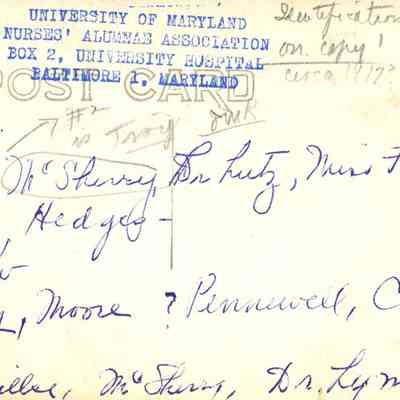 UNIVERSITY OF MARYLAND
NURSES' ALUMNAE ASSOCIATION
BOX 2, UNIVERSITY HOSPITAL
BALTIMORE 1, MARYLAND
Identification
on copy!
circa 1917?
POST CARD
#2
is Troy
McSherry, Dr Lutz, Miss F
Hedges -
Moore ? Pennewell, C
McSherry, Dr. Lym